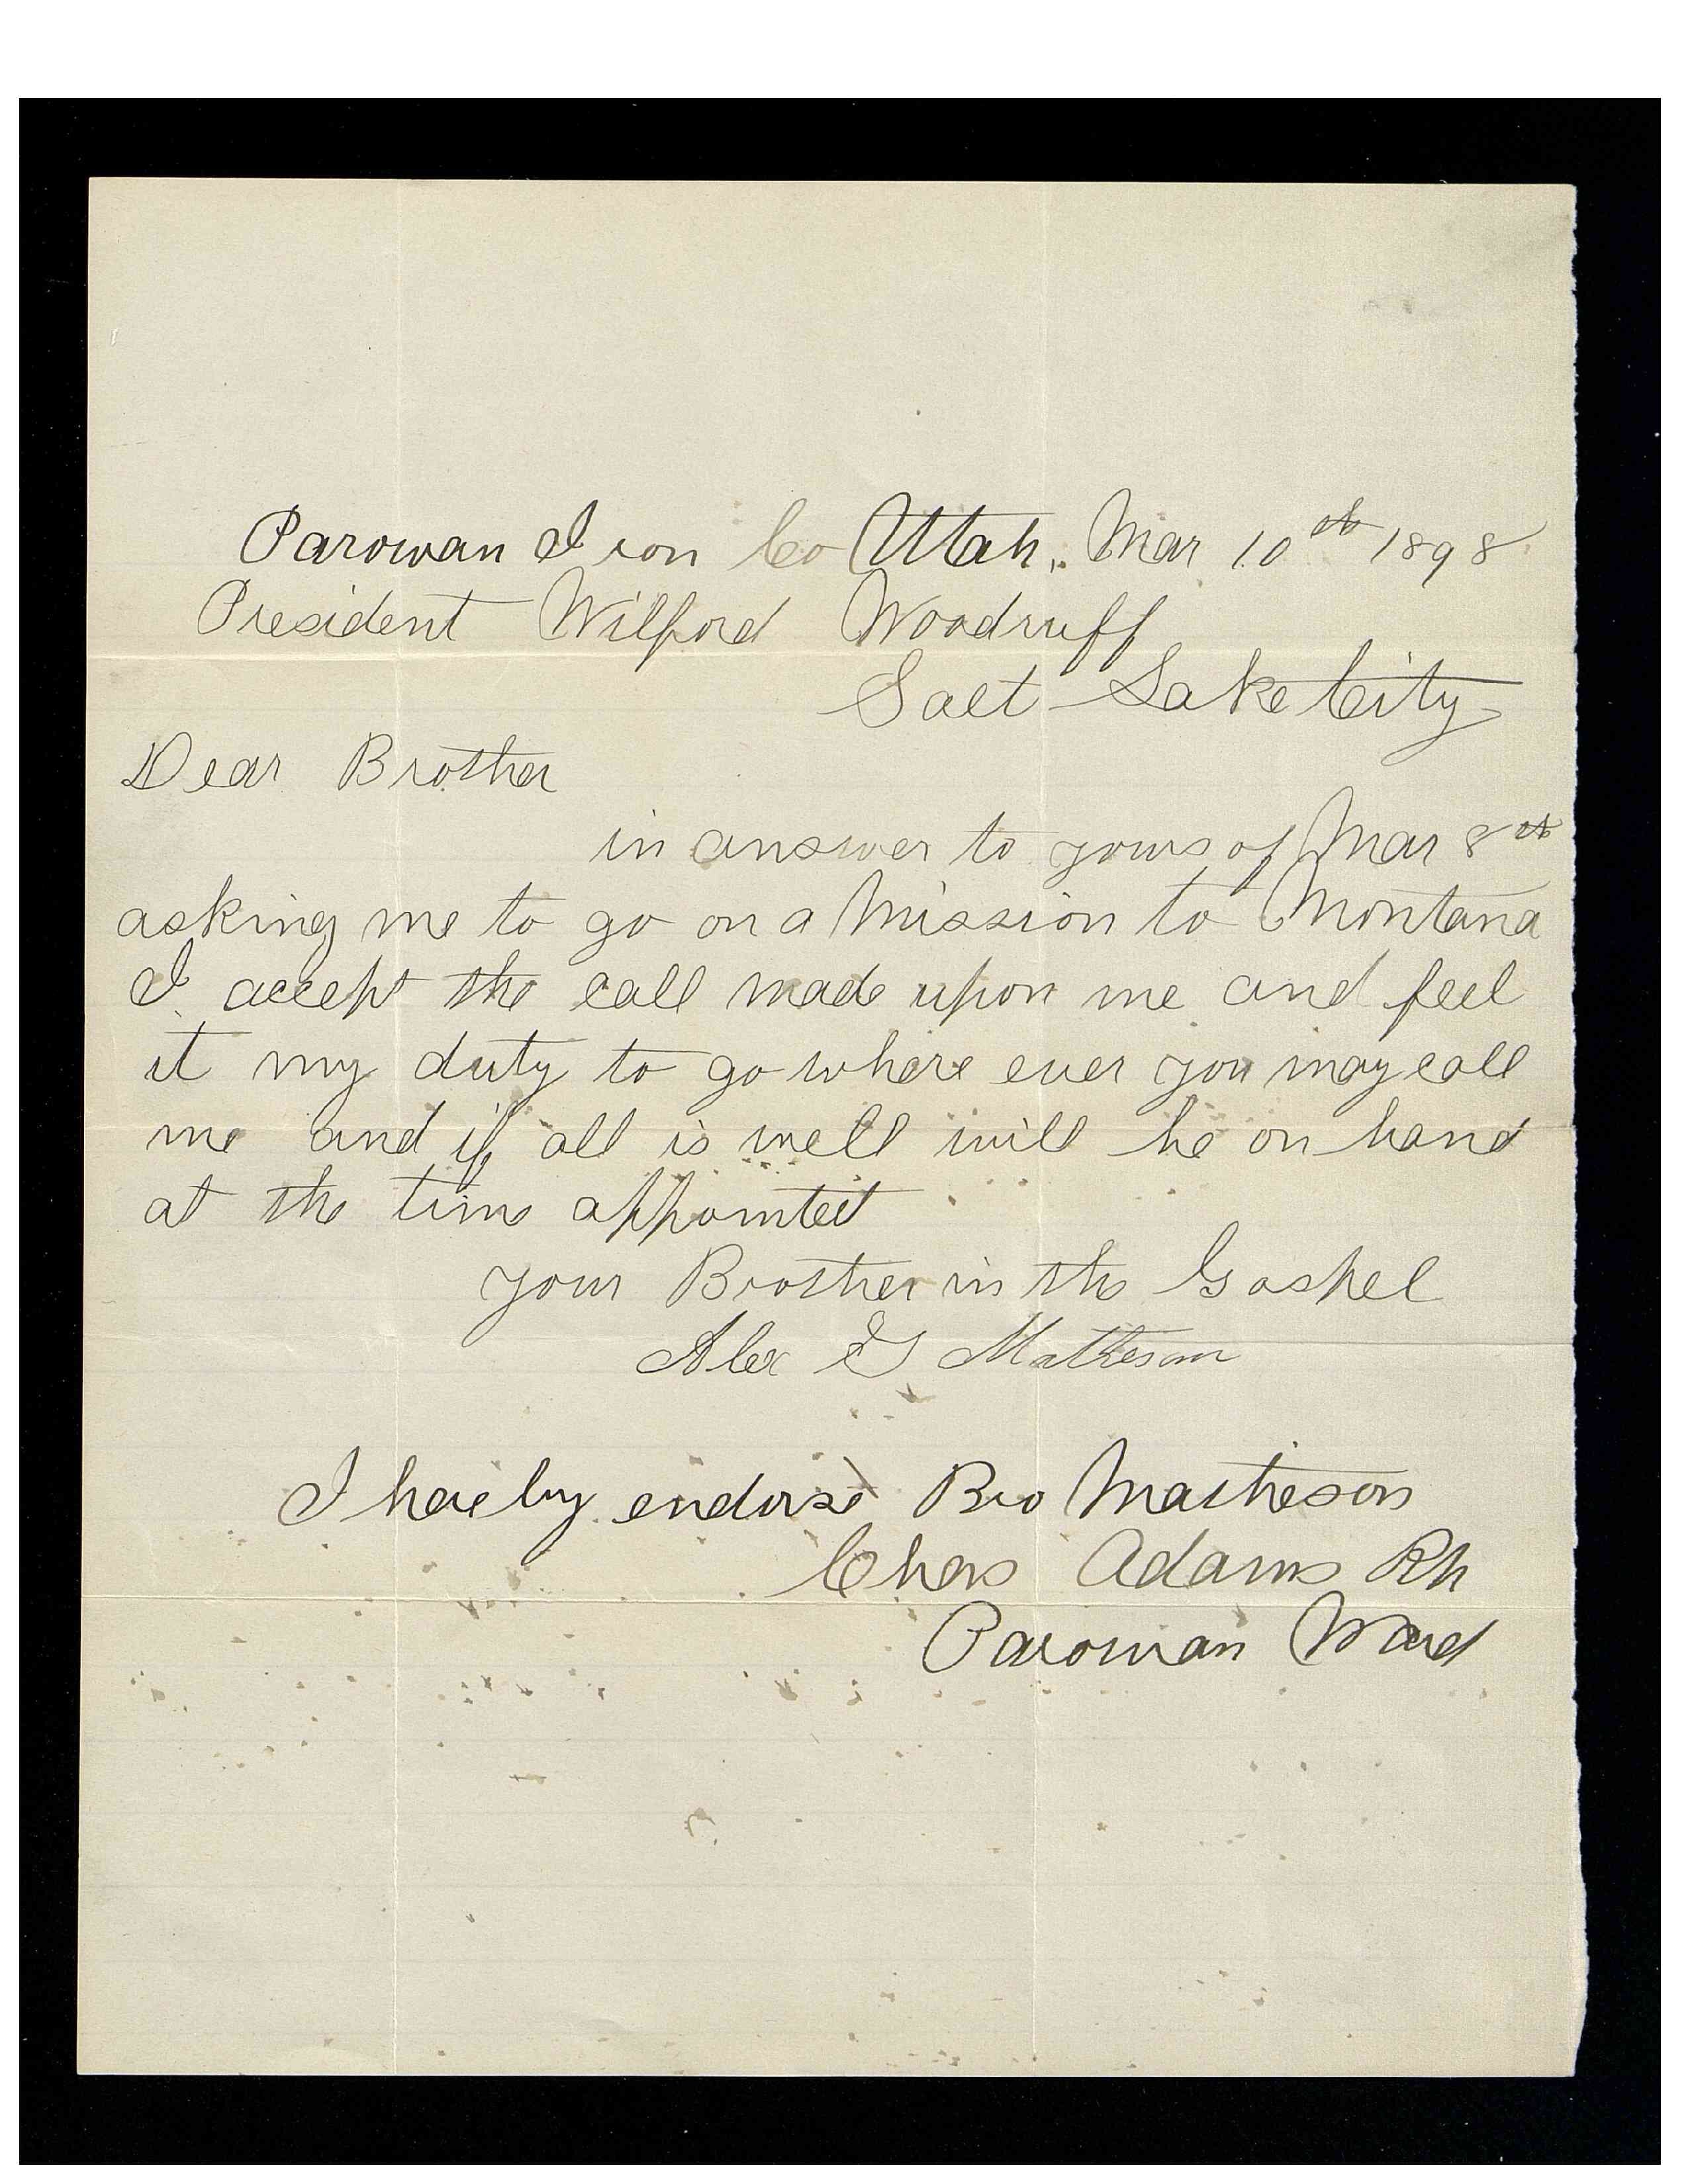 Parowan Iron Co Utah, Mar 10th 1898
President Wilford Woodruff
Salt Lake City
Dear Brother
in answer to yours of Mar 8th
asking me to go on a Mission to Montana
I accept the call made upon me and feel
it my duty to go where ever you may call
me and if all is well will be on hand
at the time appointed
your Brother in the Gospel
Alex G Matheson
I hereby endorse Bro Matheson
Chas Adams
Parowan Ward